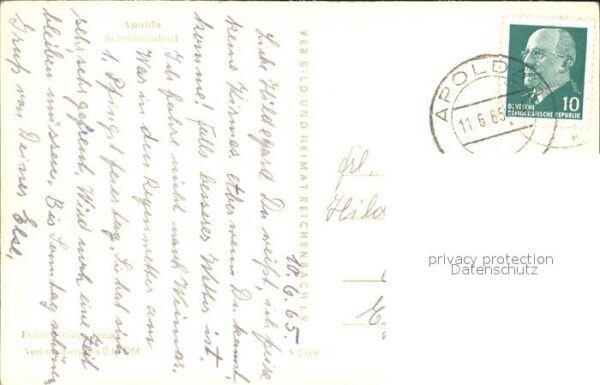 Apolda
Schwanenteich
10.6.65.
Liebe Hildegard! Du weißt, ich feiere
keine Kirmes, aber wenn Du kannst,
komme! Falls besseres Wetter ist.
Ich fahre nicht nach Weimar.
War in dem Regenwetter am
1. Pfingstfeiertag. Sie hat sich
sehr, sehr gefreut. Wird noch eine Zeit
bleiben müssen. Bis Sonntag
Gruß von Deiner Else.
VEB BILD UND HEIMAT REICHENBACH I. V.
APOLDA
11.6.65
10
DEUTSCHE
DEMOKRATISCHE REPUBLIK
Frl.
Hild
privacy protection
Datenschutz